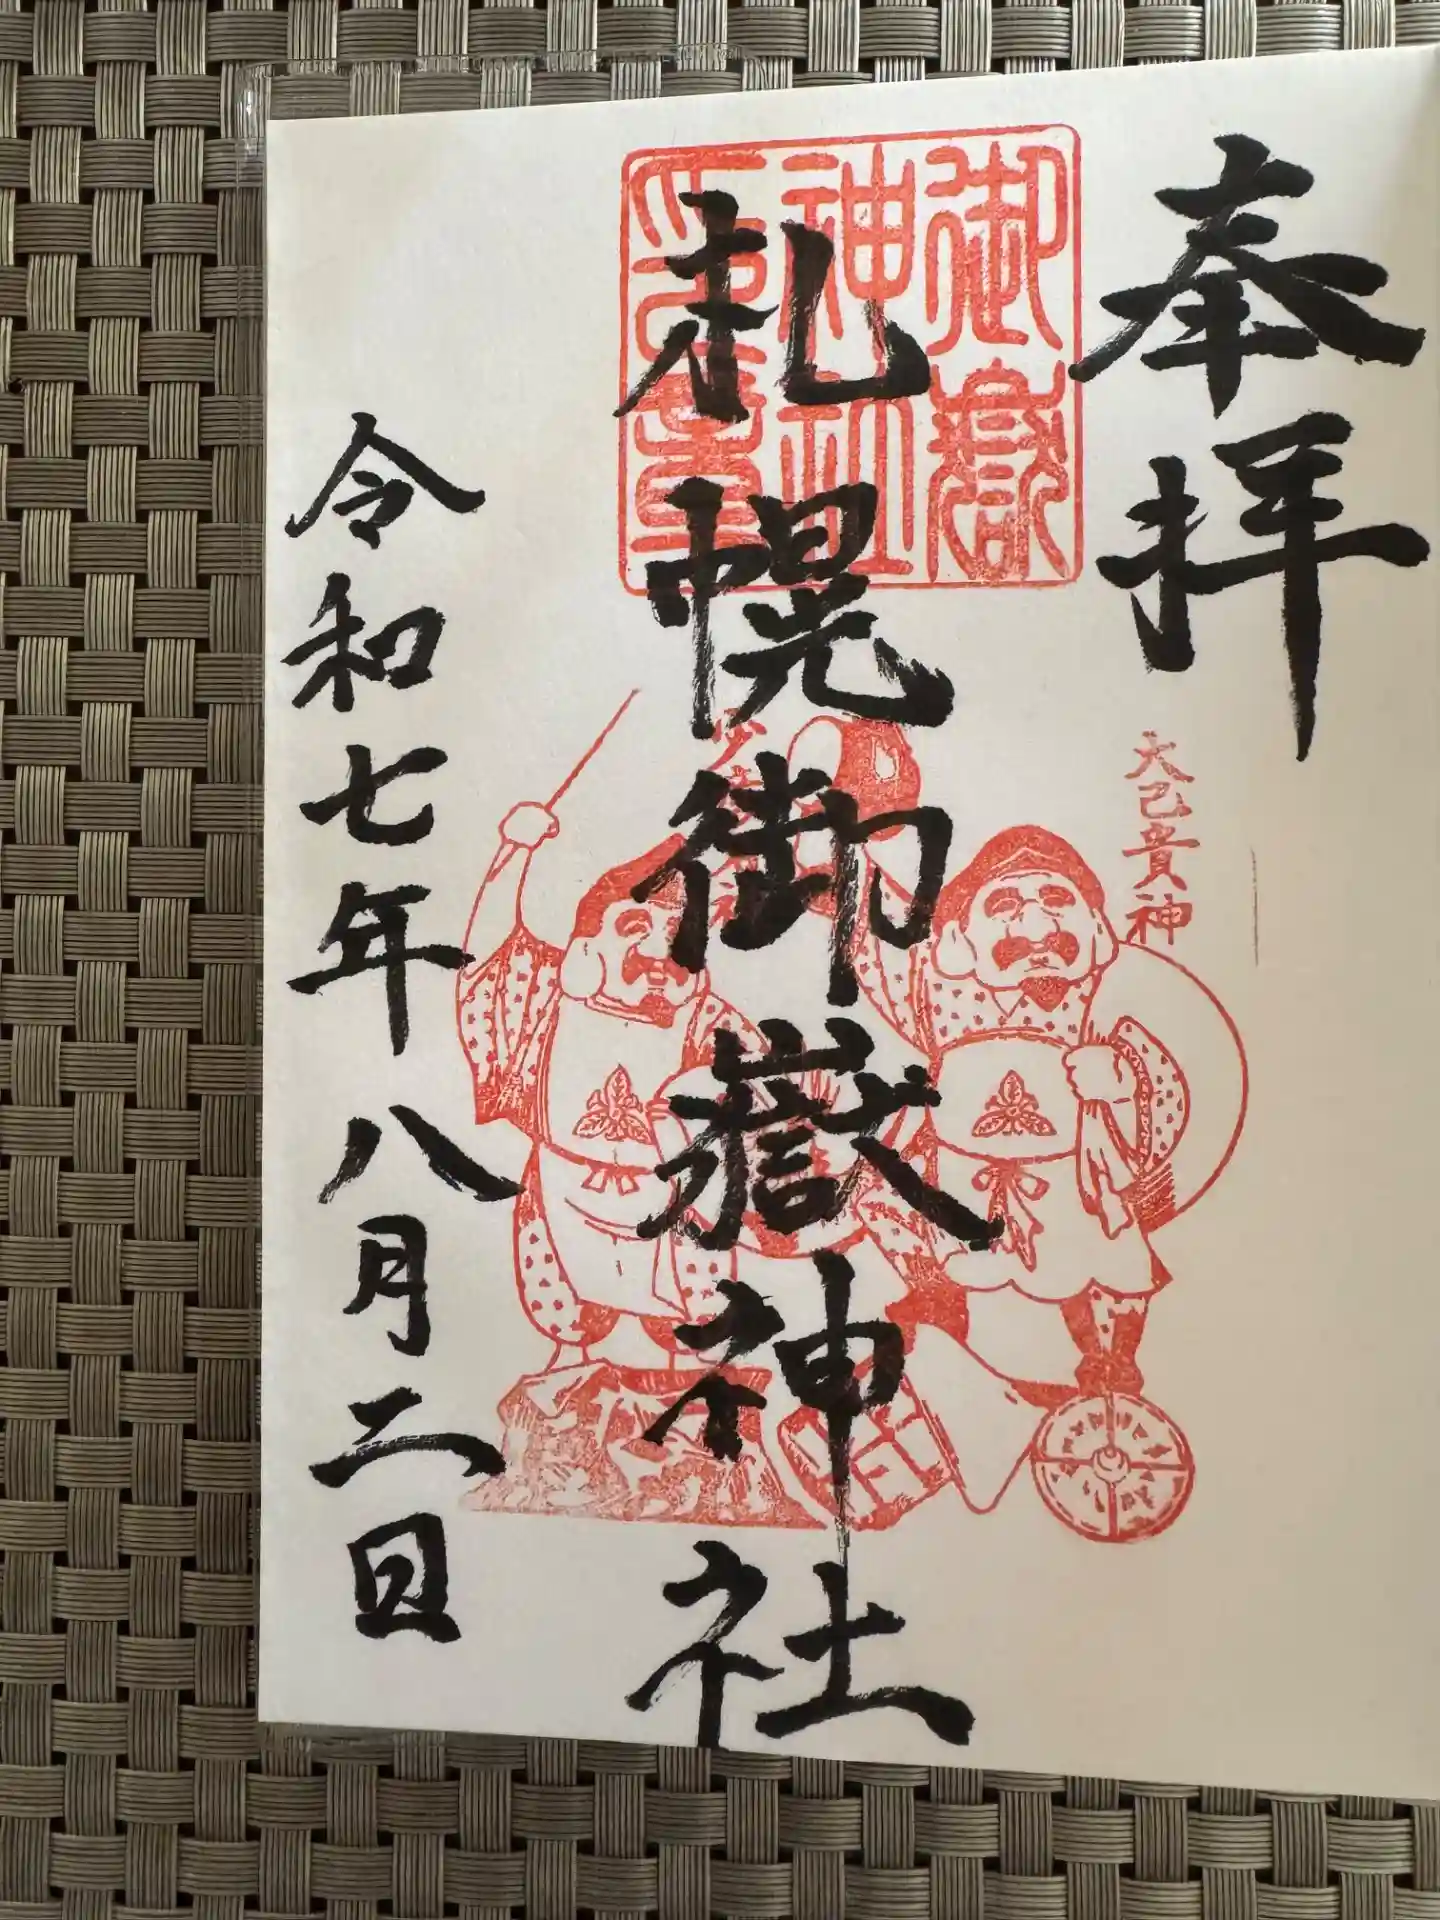 奉拝
大己貴神
御嶽
神社
印章
札幌御嶽神社
令和七年八月二日